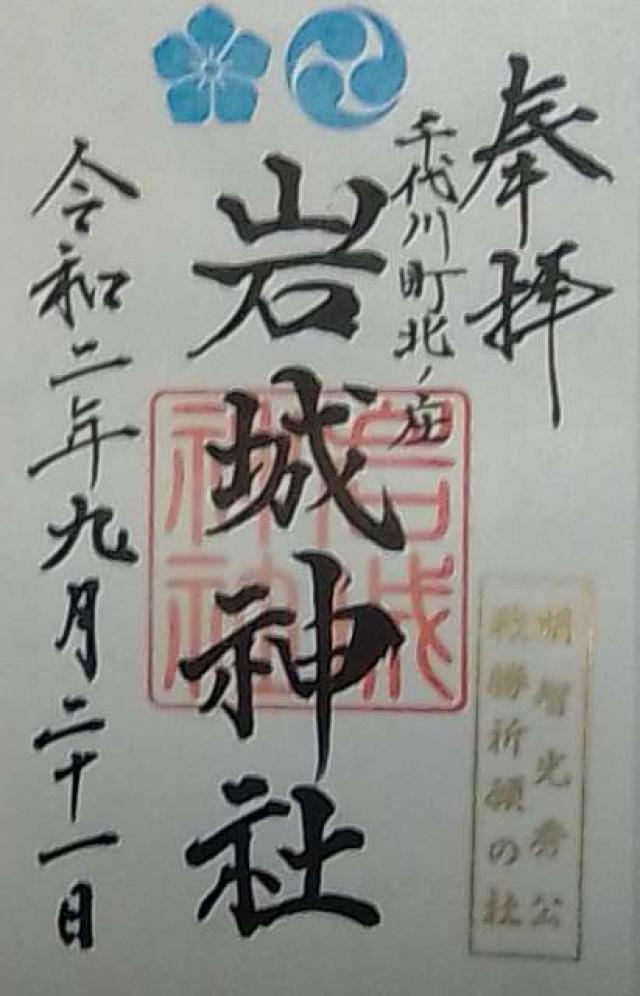 奉拝
千代川町北ノ庄
岩城神社
岩城神社
令和二年九月二十一日
明智光秀公
戦勝祈願の社